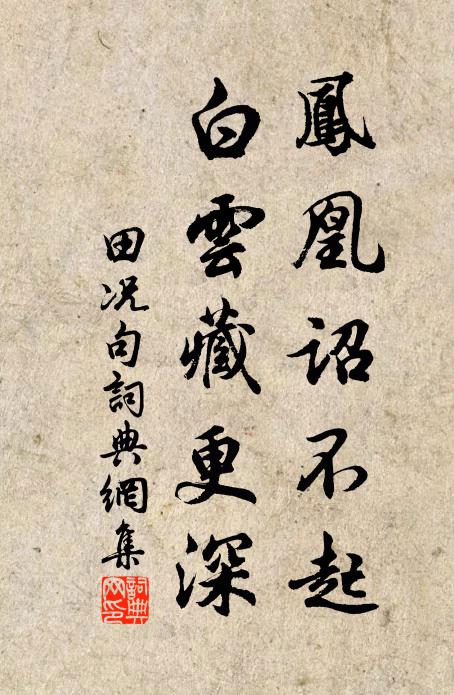 鳳凰詔不起
白雲藏更深
田况句詞典網集
詞典网印